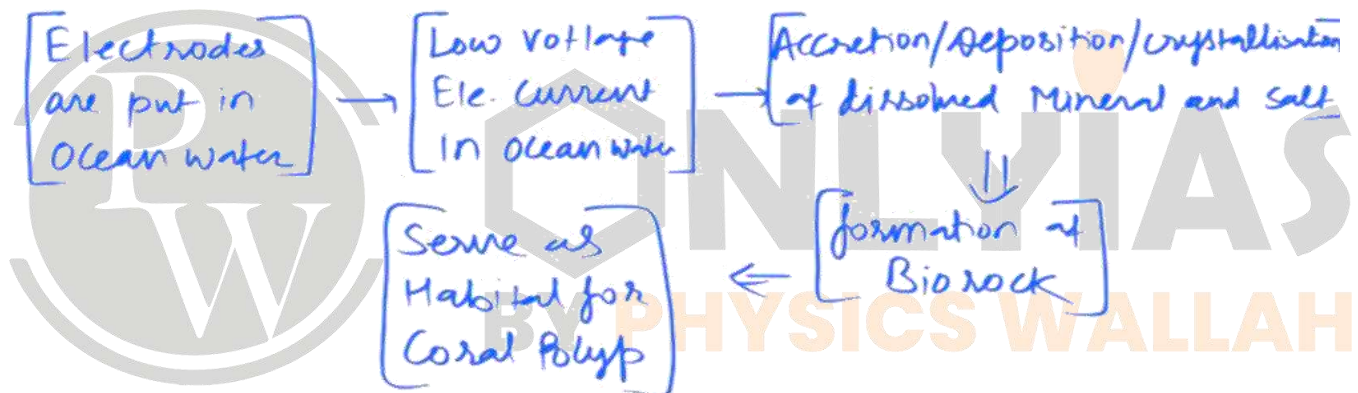 Electrodes
are put in
Ocean water
Low Votlage
Ele. Current
In Ocean water
Accretion/Deposition/crystallisation
of dissolved Mineral and Salt
formation of
Biorock
Serve as
Habitat for
Coral Polyp
PW
ONLYIAS
BY PHYSICS WALLAH